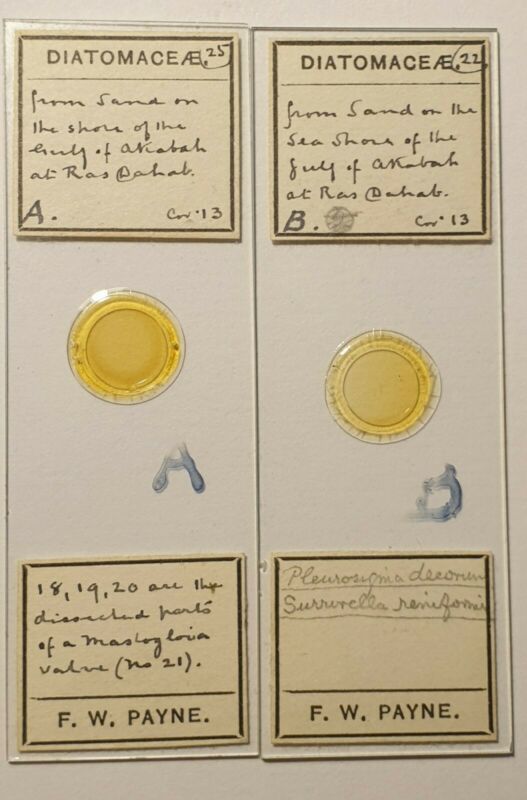 DIATOMACEÆ. 25
from Sand on
the shore of the
Gulf of Akabah
at Ras Dahab.
A. Cov. 13
A
18, 19, 20 are the
dissected parts
of a Mastogloia
valve (No 21).
F. W. PAYNE.
DIATOMACEÆ. 22
from Sand on the
Sea Shore of the
Gulf of Akabah
at Ras Dahab.
B. Cov. 13
Pleurosigma decorum
Surirella reniformi
F. W. PAYNE.